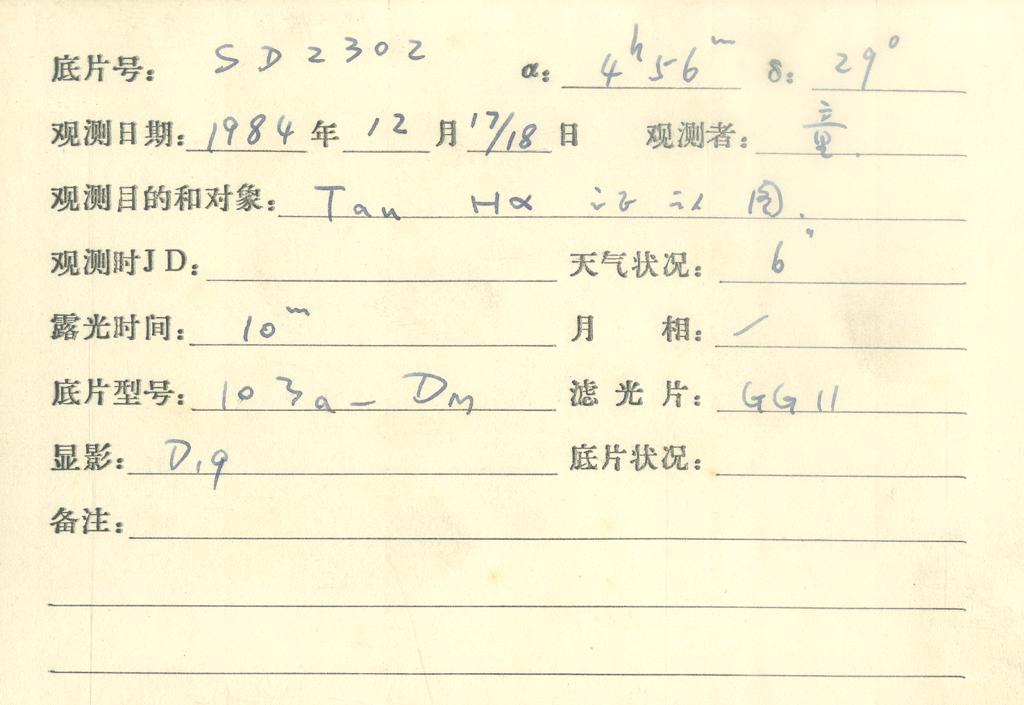 底片号: SD2302 α: 4ʰ56ᵐ δ: 29°
观测日期: 1984年12月17/18日 观测者: 童
观测目的和对象: Tau Hα 证认图.
观测时JD: 天气状况: 6"
露光时间: 10ᵐ 月 相: /
底片型号: 103a-Dm 滤光片: GG11
显影: D19 底片状况:
备注: